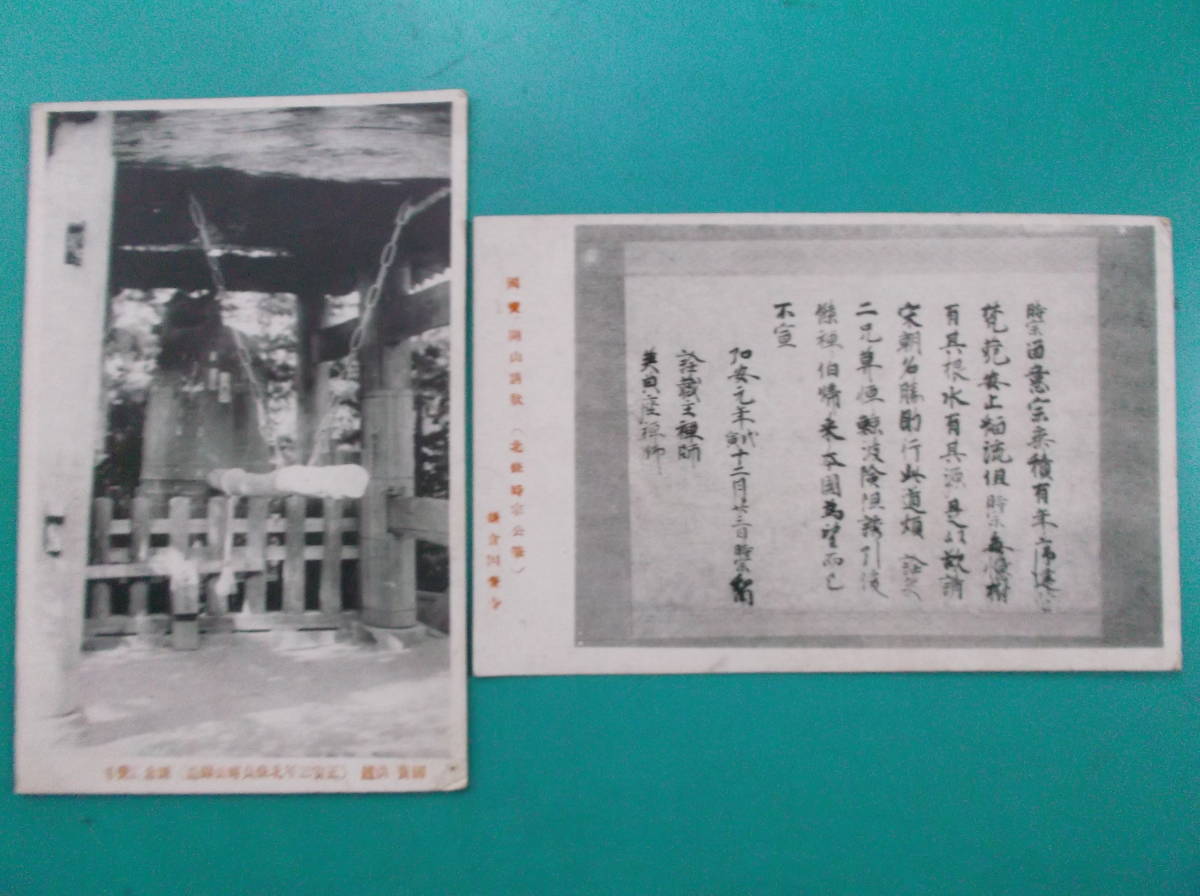 國寶 洪鐘 (正安三年北條貞時公鑄造) 鎌倉圓覺寺
時宗留意宗乘積有年序建營
梵苑安止緇流但時宗每憶樹
有其根水有其源是以欲請
宋朝名勝助行此道煩詮英
二兄莫憚鯨波險阻誘引俊
傑禪伯歸來本國為望而已
不宣
弘安元年戊寅十二月廿三日時宗
詮藏主禪師
英典座禪師
國寶 開山請狀 (北條時宗公筆)
鎌倉圓覺寺